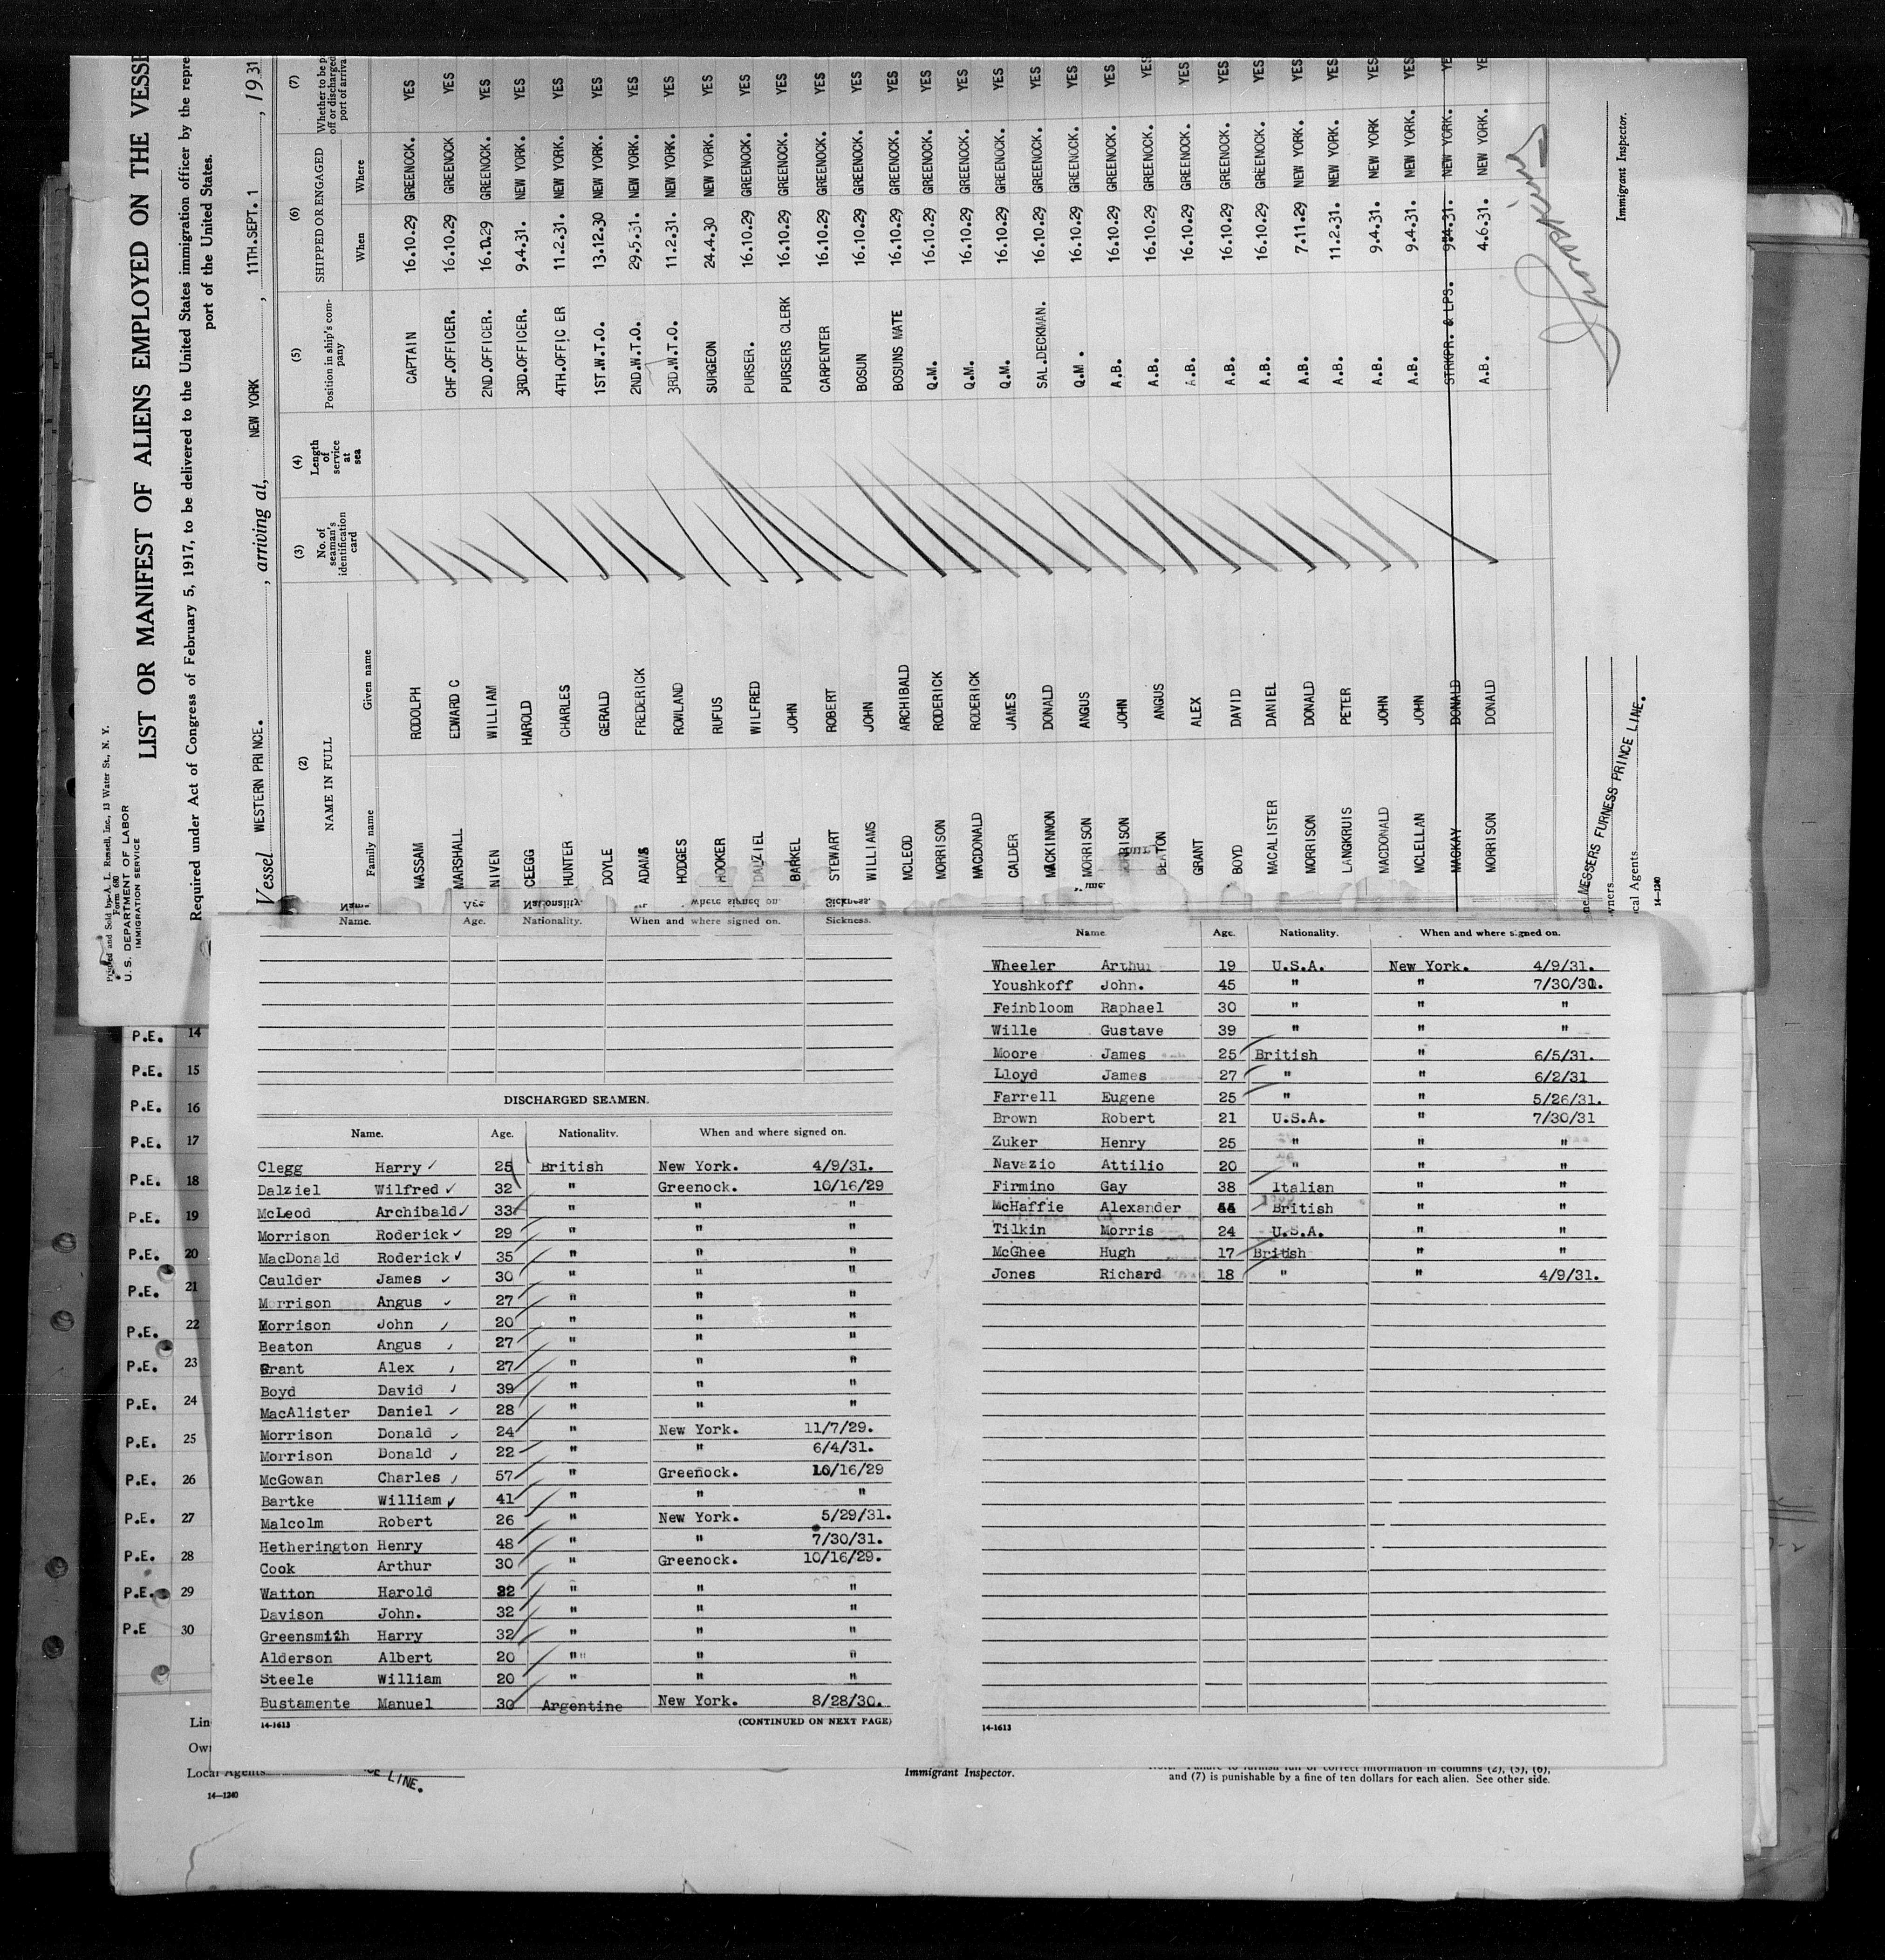 Printed and Sold by A. L. Russell, Inc., 13 Water St., N. Y.
Form 680
U. S. DEPARTMENT OF LABOR
IMMIGRATION SERVICE
LIST OR MANIFEST OF ALIENS EMPLOYED ON THE VESSE
Required under Act of Congress of February 5, 1917, to be delivered to the United States immigration officer by the repre
port of the United States.
Vessel WESTERN PRINCE. , arriving at, NEW YORK , 11TH.SEPT.1 , 1931
(2) (3) (4) (5) (6) (7)
NAME IN FULL No. of seaman's identification card Length of service at sea Position in ship's company SHIPPED OR ENGAGED Whether to be p off or discharged port of arriva
Family name Given name When Where
MASSAM RODOLPH CAPTAIN 16.10.29 GREENOCK. YES
MARSHALL EDWARD C CHF.OFFICER. 16.10.29 GREENOCK YES
NIVEN WILLIAM 2ND.OFFICER. 16.10.29 GREENOCK. YES
CEEGG HAROLD 3RD.OFFICER. 9.4.31. NEW YORK. YES
HUNTER CHARLES 4TH.OFFIC ER 11.2.31. NEW YORK. YES
DOYLE GERALD 1ST.W.T.O. 13.12.30 NEW YORK. YES
ADAMS FREDERICK 2ND.W.T.O. 29.5.31. NEW YORK. YES
HODGES ROWLAND 3RD.W.T.O. 11.2.31. NEW YORK. YES
HOOKER RUFUS SURGEON 24.4.30 NEW YORK. YES
DALZIEL WILFRED PURSER. 16.10.29 GREENOCK. YES
BARKEL JOHN PURSERS CLERK 16.10.29 GREENOCK. YES
STEWART ROBERT CARPENTER 16.10.29 GREENOCK. YES
WILLIAMS JOHN BOSUN 16.10.29 GREENOCK. YES
MCLEOD ARCHIBALD BOSUNS MATE 16.10.29 GREENOCK. YES
MORRISON RODERICK Q.M. 16.10.29 GREENOCK. YES
MACDONALD RODERICK Q.M. 16.10.29 GREENOCK. YES
CALDER JAMES Q.M. 16.10.29 GREENOCK. YES
MACKINNON DONALD SAL.DECKMAN. 16.10.29 GREENOCK. YES
MORRISON ANGUS Q.M . 16.10.29 GREENOCK. YES
JOHN A.B. 16.10.29 GREENOCK. YES
BEATON ANGUS A.B. 16.10.29 GREENOCK. YES
GRANT ALEX A.B. 16.10.29 GREENOCK. YES
BOYD DAVID A.B. 16.10.29 GREENOCK. YES
MACALISTER DANIEL A.B. 16.10.29 GREENOCK. YES
MORRISON DONALD A.B. 7.11.29 NEW YORK. YES
LANGKRUIS PETER A.B. 11.2.31. NEW YORK. YES
MACDONALD JOHN A.B. 9.4.31. NEW YORK YES
MCLELLAN JOHN A.B. 9.4.31. NEW YORK. YES
MACKAY DONALD STRKPR. & LPS. 9.4.31. NEW YORK. YE
MORRISON DONALD A.B. 4.6.31. NEW YORK. YE
Immigrant Inspector.
MESSERS FURNESS PRINCE LINE.
wners
cal Agents
14-1240
Name. Age. Nationality. When and where signed on. Sickness.
DISCHARGED SEAMEN.
Name. Age. Nationality. When and where signed on.
Clegg Harry 25 British New York. 4/9/31.
Dalziel Wilfred 32 " Greenock. 10/16/29
McLeod Archibald 33 " " "
Morrison Roderick 29 " " "
MacDonald Roderick 35 " " "
Caulder James 30 " " "
Morrison Angus 27 " " "
Morrison John 20 " " "
Beaton Angus 27 " " "
Grant Alex 27 " " "
Boyd David 39 " " "
MacAlister Daniel 28 " " "
Morrison Donald 24 " New York. 11/7/29.
Morrison Donald 22 " " 6/4/31.
McGowan Charles 57 " Greenock. 10/16/29
Bartke William 41 " " "
Malcolm Robert 26 " New York. 5/29/31.
Hetherington Henry 48 " " 7/30/31.
Cook Arthur 30 " Greenock. 10/16/29.
Watton Harold 22 " " "
Davison John. 32 " " "
Greensmith Harry 32 " " "
Alderson Albert 20 " " "
Steele William 20 " " "
Bustamente Manuel 30 Argentine New York. 8/28/30.
14-1613 (CONTINUED ON NEXT PAGE)
Name Age. Nationality. When and where signed on.
Wheeler Arthur 19 U.S.A. New York. 4/9/31.
Youshkoff John. 45 " " 7/30/31.
Feinbloom Raphael 30 " " "
Wille Gustave 39 " " "
Moore James 25 British " 6/5/31.
Lloyd James 27 " " 6/2/31
Farrell Eugene 25 " " 5/26/31.
Brown Robert 21 U.S.A. " 7/30/31
Zuker Henry 25 " " "
Navazio Attilio 20 " " "
Firmino Gay 38 Italian " "
McHaffie Alexander 44 British " "
Tilkin Morris 24 U.S.A. " "
McGhee Hugh 17 British " "
Jones Richard 18 " " 4/9/31.
14-1613
P.E. 14
P.E. 15
P.E. 16
P.E. 17
P.E. 18
P.E. 19
P.E. 20
P.E. 21
P.E. 22
P.E. 23
P.E. 24
P.E. 25
P.E. 26
P.E. 27
P.E. 28
P.E. 29
P.E 30
Lin
Own
Local Agents LINE.
14-1240
Immigrant Inspector.
and (7) is punishable by a fine of ten dollars for each alien. See other side.